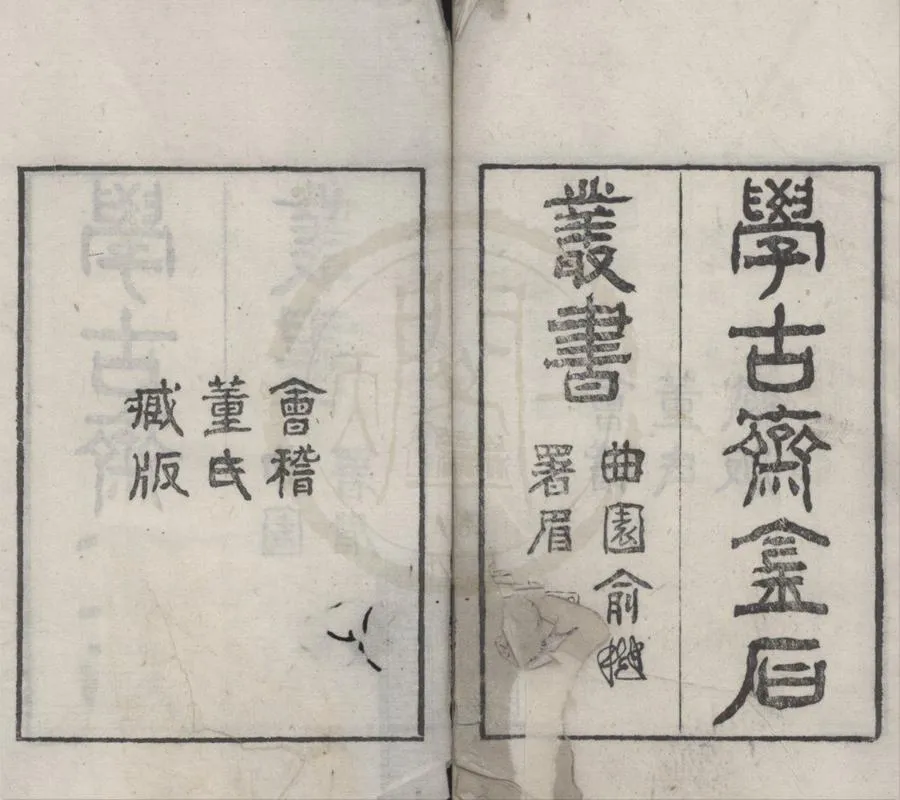 學古齋金石
叢書
曲園俞樾
署眉
會稽
董氏
臧版